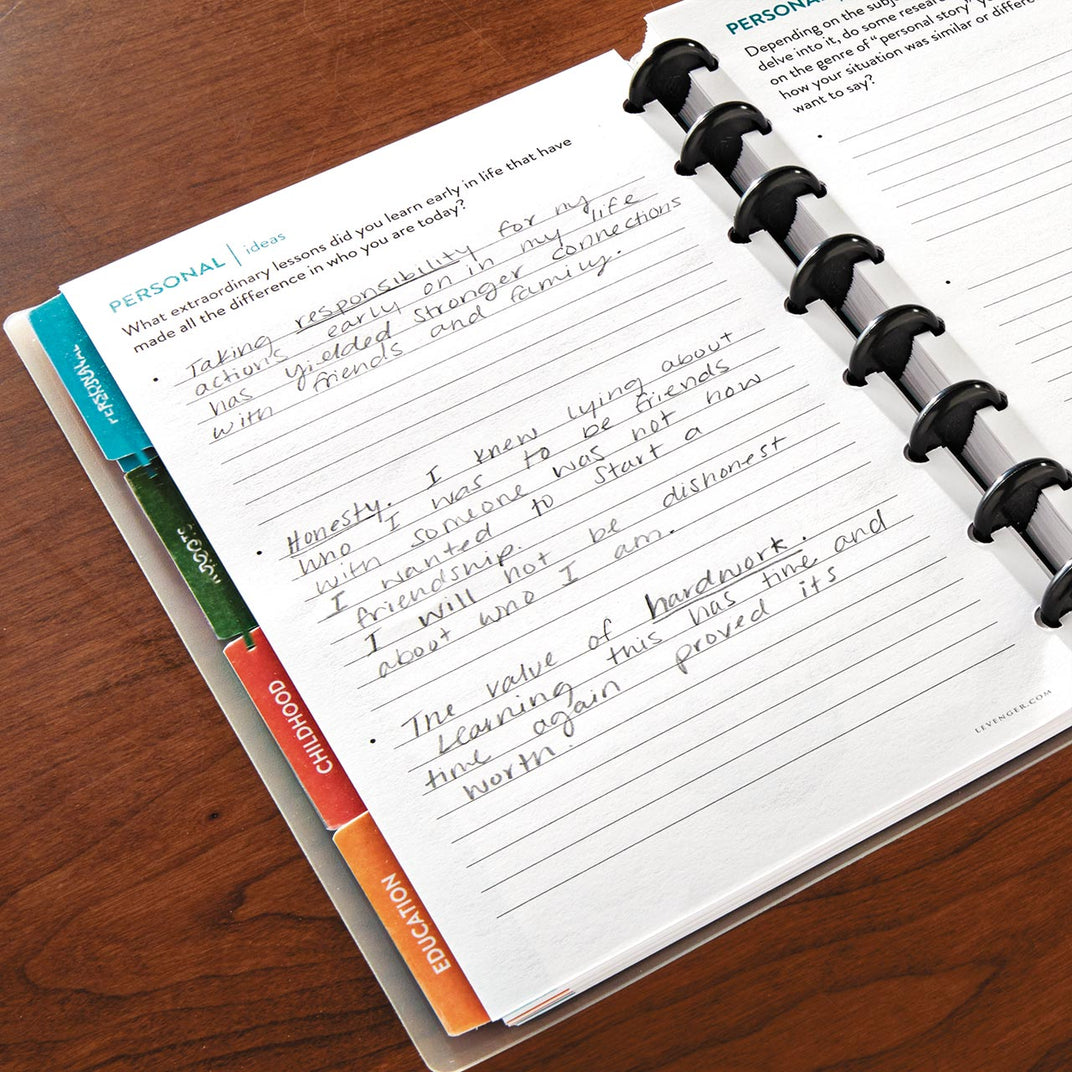 PERSONAL | ideas
What extraordinary lessons did you learn early in life that have
made all the difference in who you are today?
• Taking responsibility for my
actions early on in my life
has yielded stronger connections
with friends and family.
• Honesty. I knew lying about
who I was to be friends
with someone was not how
I wanted to start a
friendship.
I will not be dishonest
about who I am.
• The value of hardwork.
Learning this has time and
time again proved its
worth.
LEVENGER.COM
PERSONAL
Depending on the subje
delve into it, do some resear
on the genre of "personal story"
how your situation was similar or differe
want to say?
PERSONAL
ROOTS
CHILDHOOD
EDUCATION